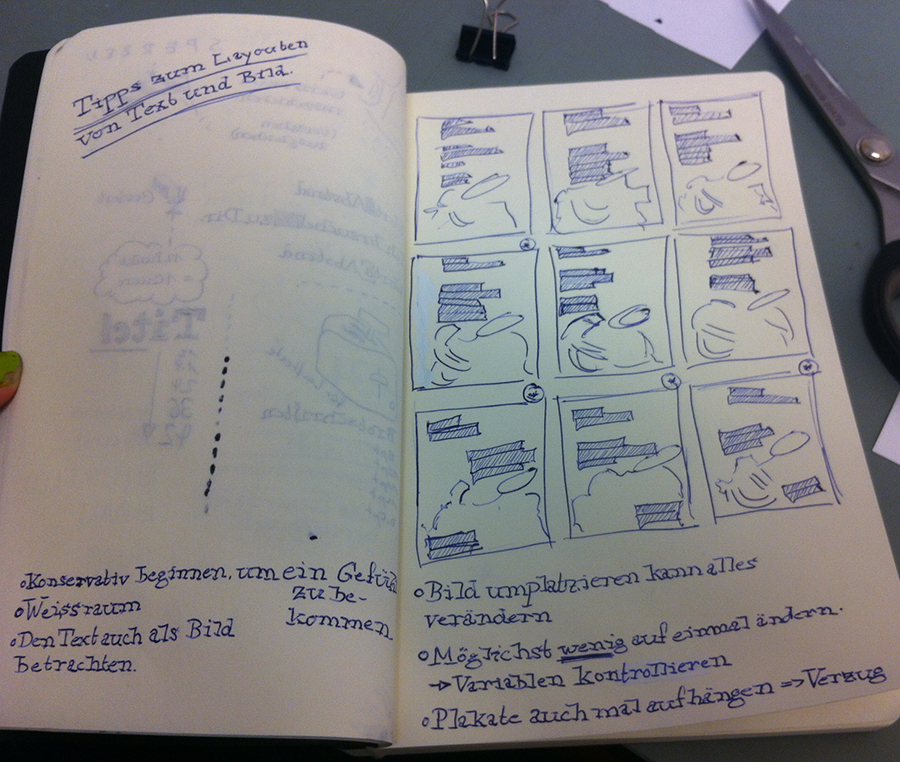 Tipps zum Layouten
von Text und Bild.
Titel
• Konservativ beginnen, um ein Gefühl
zu be-
kommen
• Weissraum
• Den Text auch als Bild
betrachten.
• Bild umplatzieren kann alles
verändern
• Möglichst wenig auf einmal ändern.
→ Variablen kontrollieren
• Plakate auch mal aufhängen => Verzug